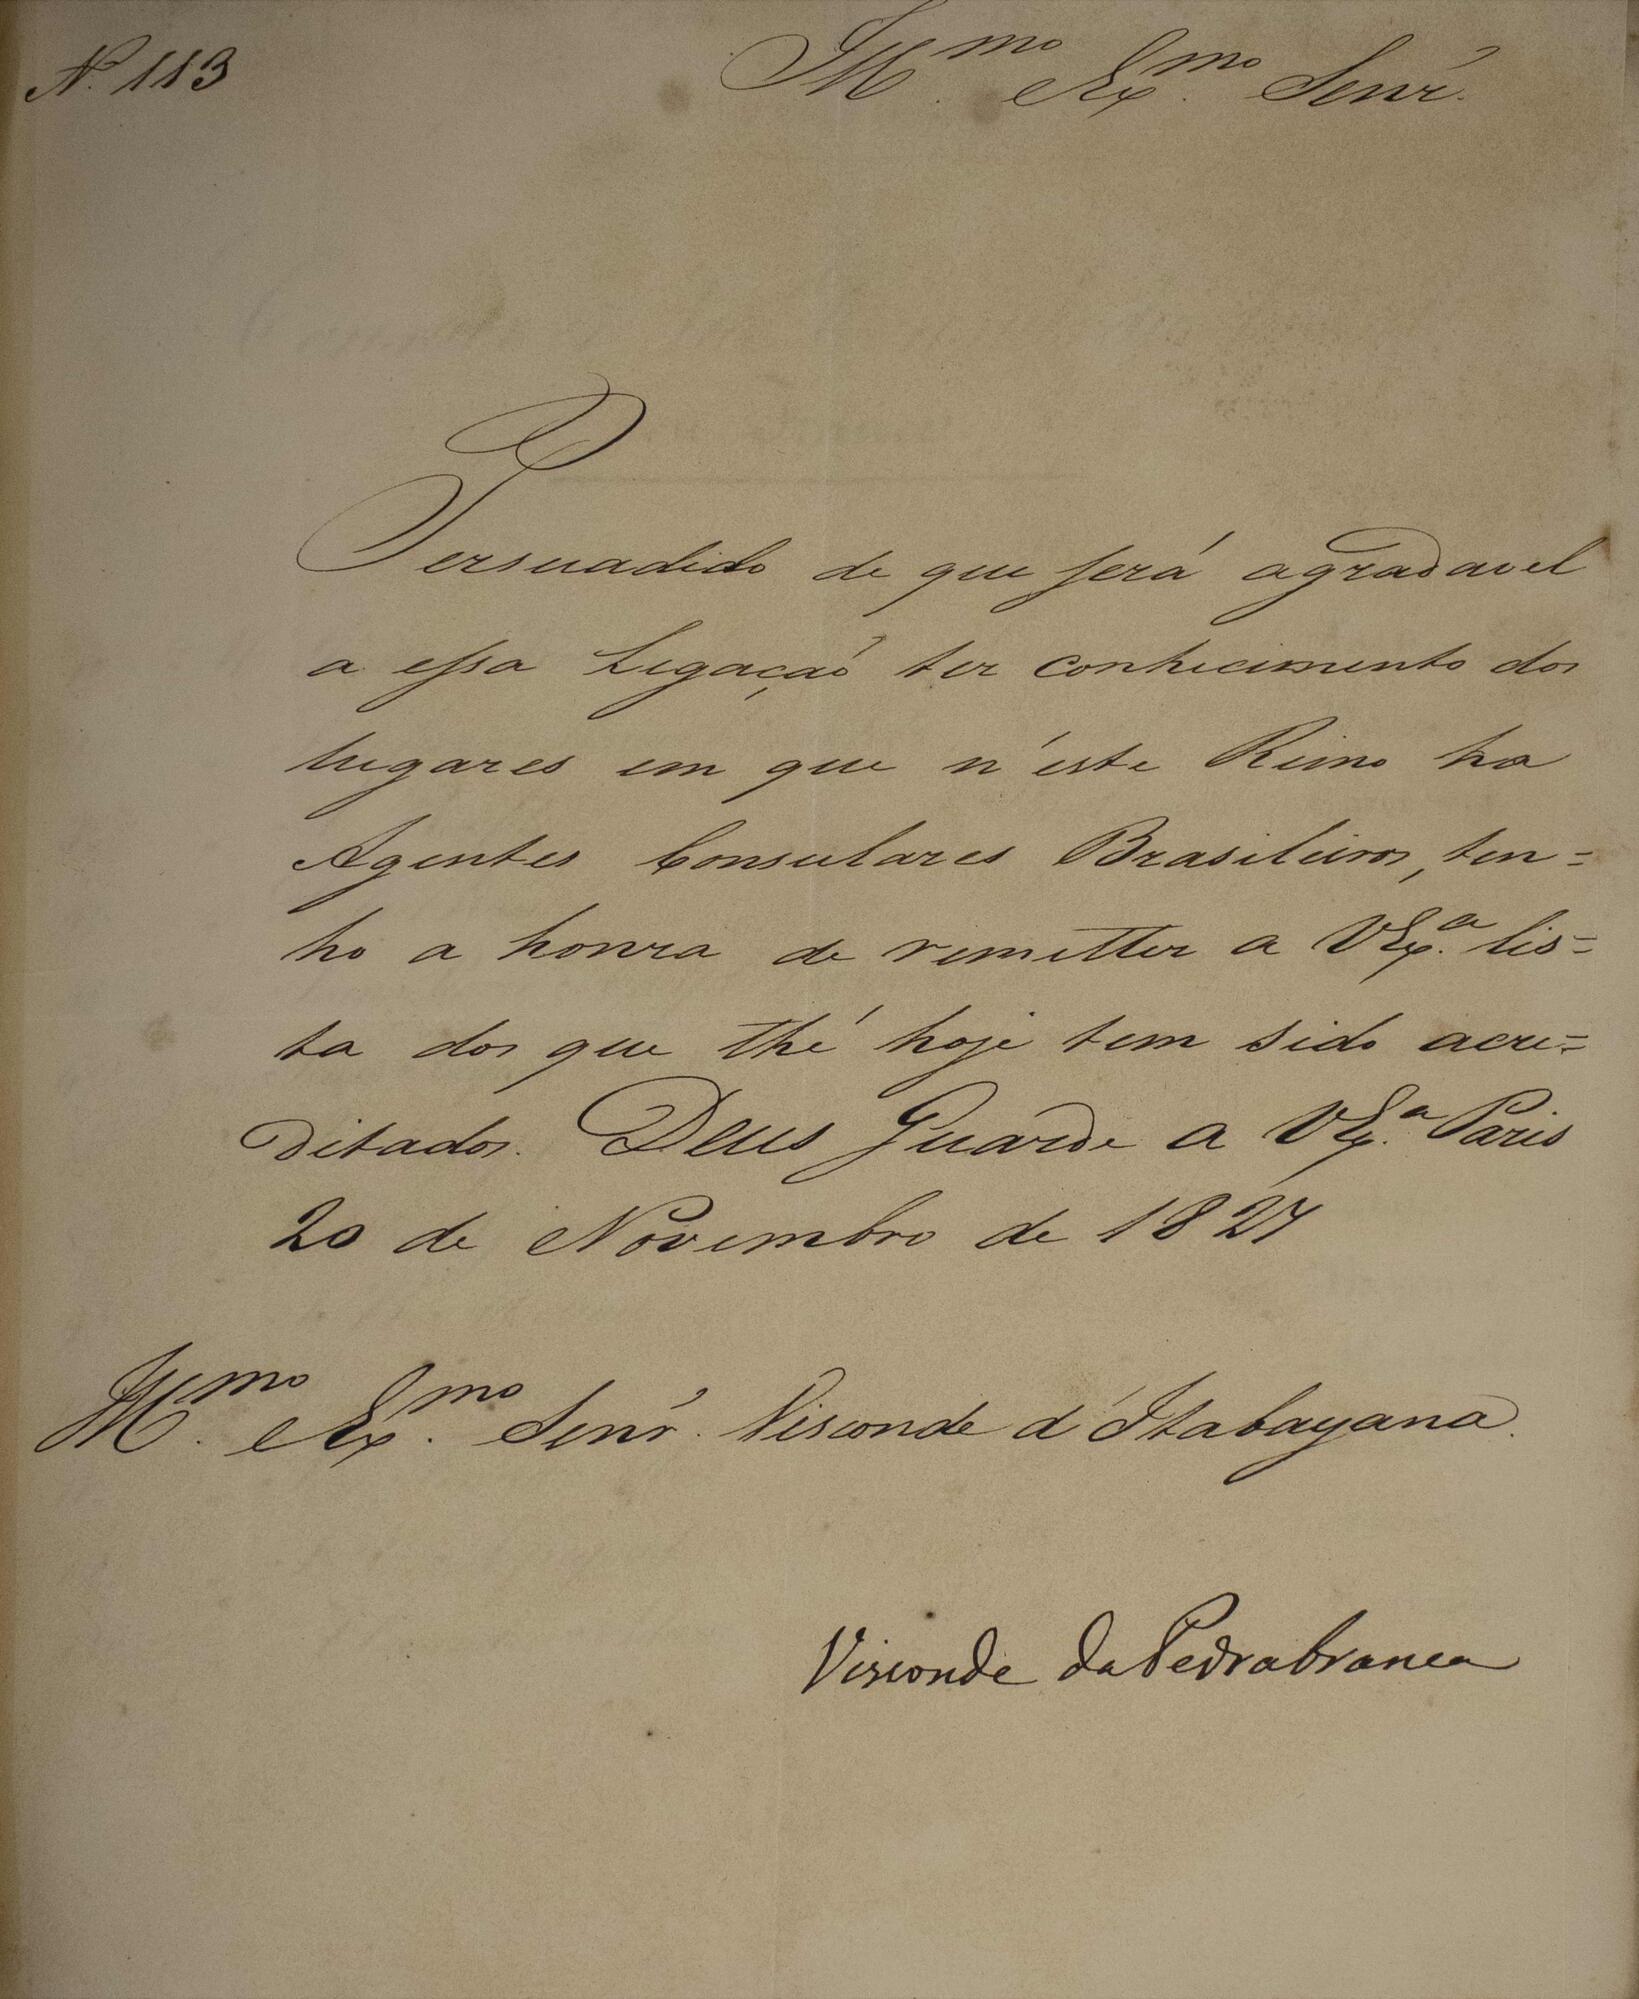 N. 113
Ill.mo e Ex.mo Senr.
Persuadido de que será agradavel
a essa Legação ter conhecimento dos
lugares em que n'este Reino ha
Agentes Consulares Brasileiros, ten=
ho a honra de remetter a VEx.a lis=
ta dos que thé hoje tem sido acre=
ditados. Deus Guarde a VEx.a Paris
20 de Novembro de 1827
Ill.mo e Ex.mo Senr. Visconde d'Itabayana.
Visconde da Pedrabranca